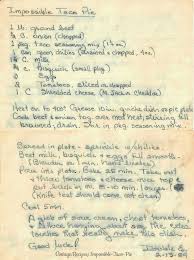 Impossible Taco Pie
1 lb. ground beef
½ C. onion (chopped)
1 pkg. taco seasoning mix (1¼ oz)
1 can green chilies (drained & chopped, 4 oz)
1¼ C. milk
¾ C. Bisquick (small pkg.)
3 Eggs
2 Tomatoes, sliced or chopped
1 C. Shredded cheese (M. Jack or Cheddar)
Heat oven to 400. Grease 10 in. quiche dish or pie plate
Cook beef & onion
brown, drain. Stir in pkg. seasoning mix.
Spread in plate. Sprinkle w/ chilies.
Beat milk, Bisquick & eggs till smooth.
(Blender on hi
Pour into plate. Bake 25 min. Take
out, add tomatoes & cheese on top &
put back in 8-10 min. longer.
(Knife test should come out clean)
Cool 5 min.
A glob of sour cream, chopped tomatoes,
& the extra
touches that really make this dish.
Good luck!
Vintage Recipes: Impossible Taco Pie